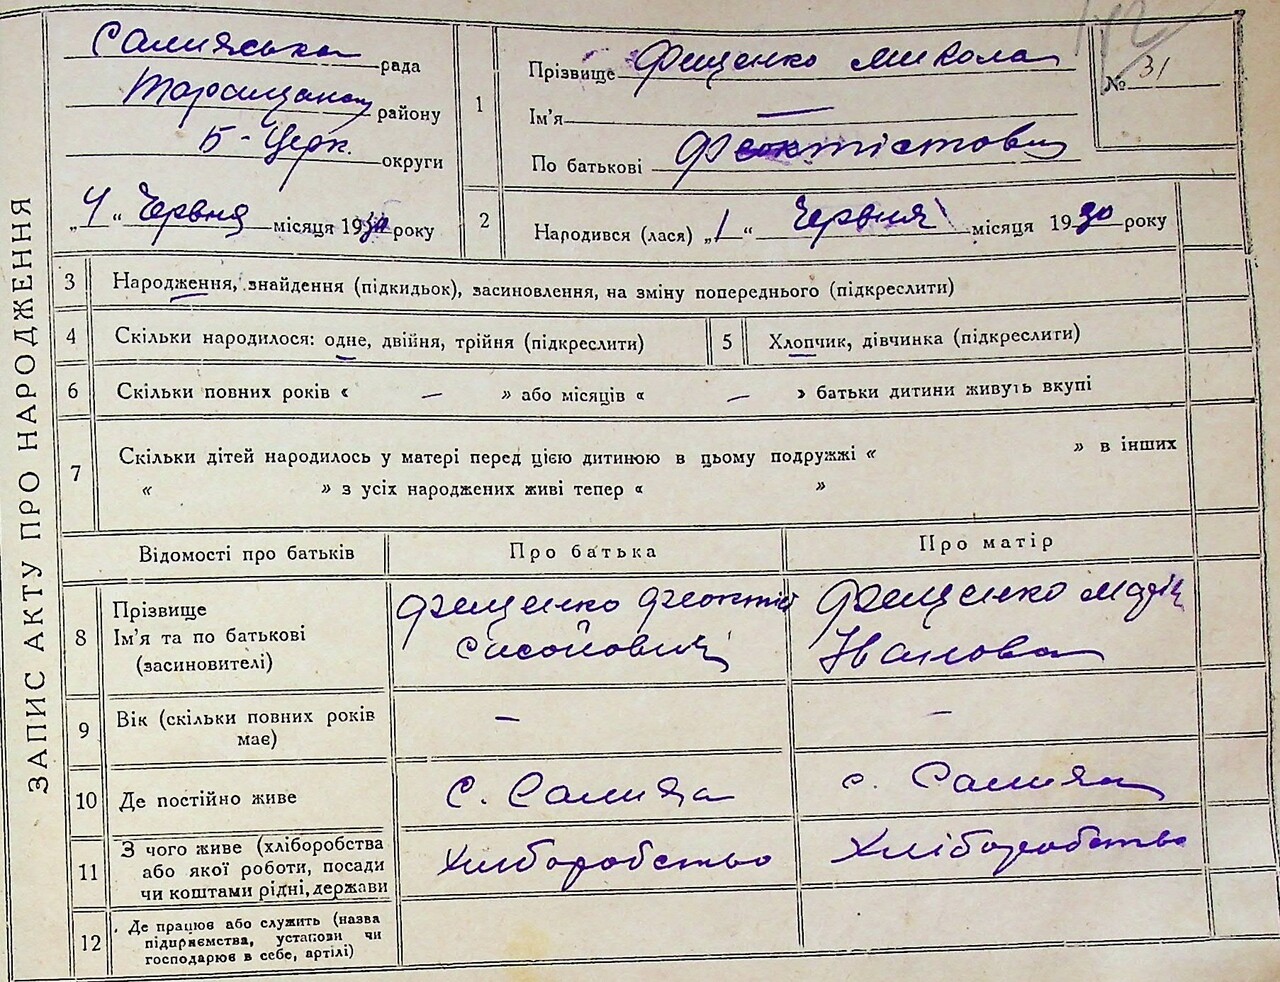 ЗАПИС АКТУ ПРО НАРОДЖЕННЯ
Салиська рада
Таращанск району
Б-Церк. округи
„4“ Червня місяця 1930 року
1
Прізвище Фещенко Микола
Ім'я —
По батькові Феоктістович
№ 31
2
Народився (лася) „1“ Червня місяця 1930 року
3 Народження, знайдення (підкидьок), засиновлення, на зміну попереднього (підкреслити)
4 Скільки народилося: одне, двійня, трійня (підкреслити)
5 Хлопчик, дівчинка (підкреслити)
6 Скільки повних років « — » або місяців « — » батьки дитини живуть вкупі
7 Скільки дітей народилось у матері перед цією дитиною в цьому подружжі « » в інших
« » з усіх народжених живі тепер « »
Відомості про батьків Про батька Про матір
8
Прізвище
Ім'я та по батькові
(засиновителі)
Фещенко Феоктіст
Сисойович
Фещенко Марія
Іванова
9
Вік (скільки повних років
має)
— —
10 Де постійно живе с. Салиха с. Салиха
11
З чого живе (хліборобства
або якої роботи, посади
чи коштами рідні, держави
Хліборобство Хліборобство
12
Де працює або служить (назва
підприємства, установи чи
господарює в себе, артілі)